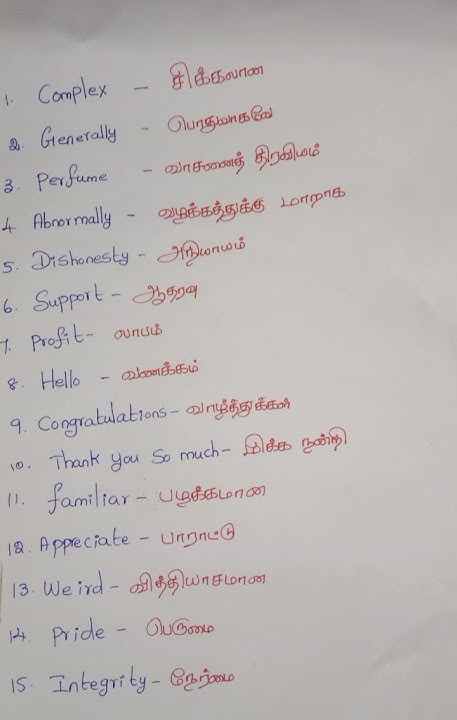 1. Complex - சிக்கலான
2. Generally - பொதுவாகவே
3. Perfume - வாசனைத் திரவியம்
4. Abnormally - வழக்கத்துக்கு மாறாக
5. Dishonesty - அநியாயம்
6. Support - ஆதரவு
7. Profit - லாபம்
8. Hello - வணக்கம்
9. Congratulations - வாழ்த்துக்கள்
10. Thank you So much - மிக்க நன்றி
11. familiar - பழக்கமான
12. Appreciate - பாராட்டு
13. Weird - வித்தியாசமான
14. Pride - பெருமை
15. Integrity - நேர்மை